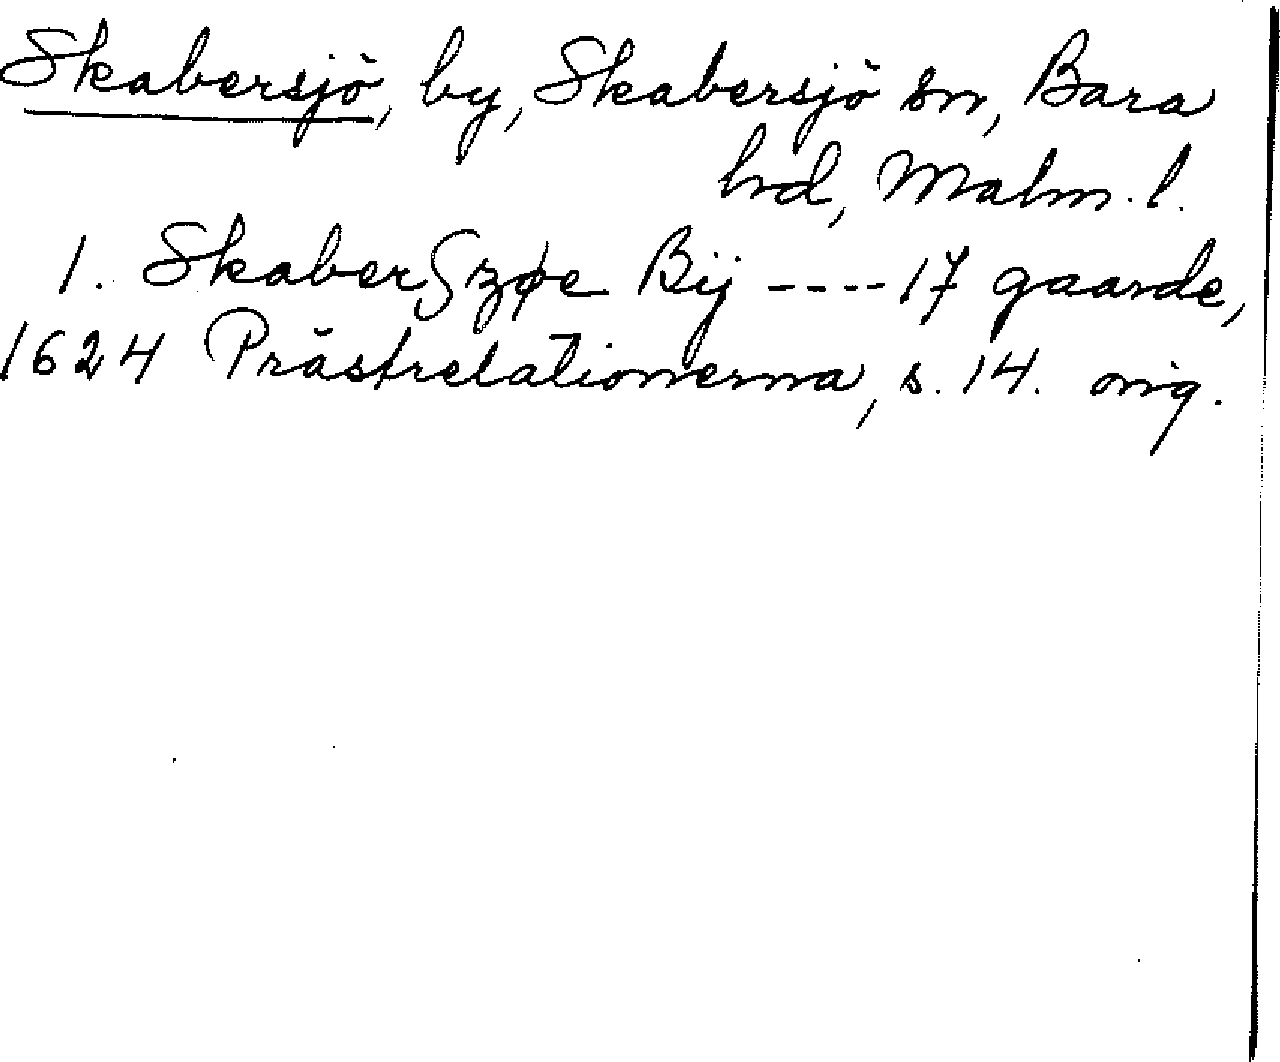 Skabersjö, by, Skabersjö sn, Bara
hrd, Malm. l.
1. Skaberszøe Bÿ ---- 17 gaarde,
1624 Prästrelationerna, s. 14. orig.